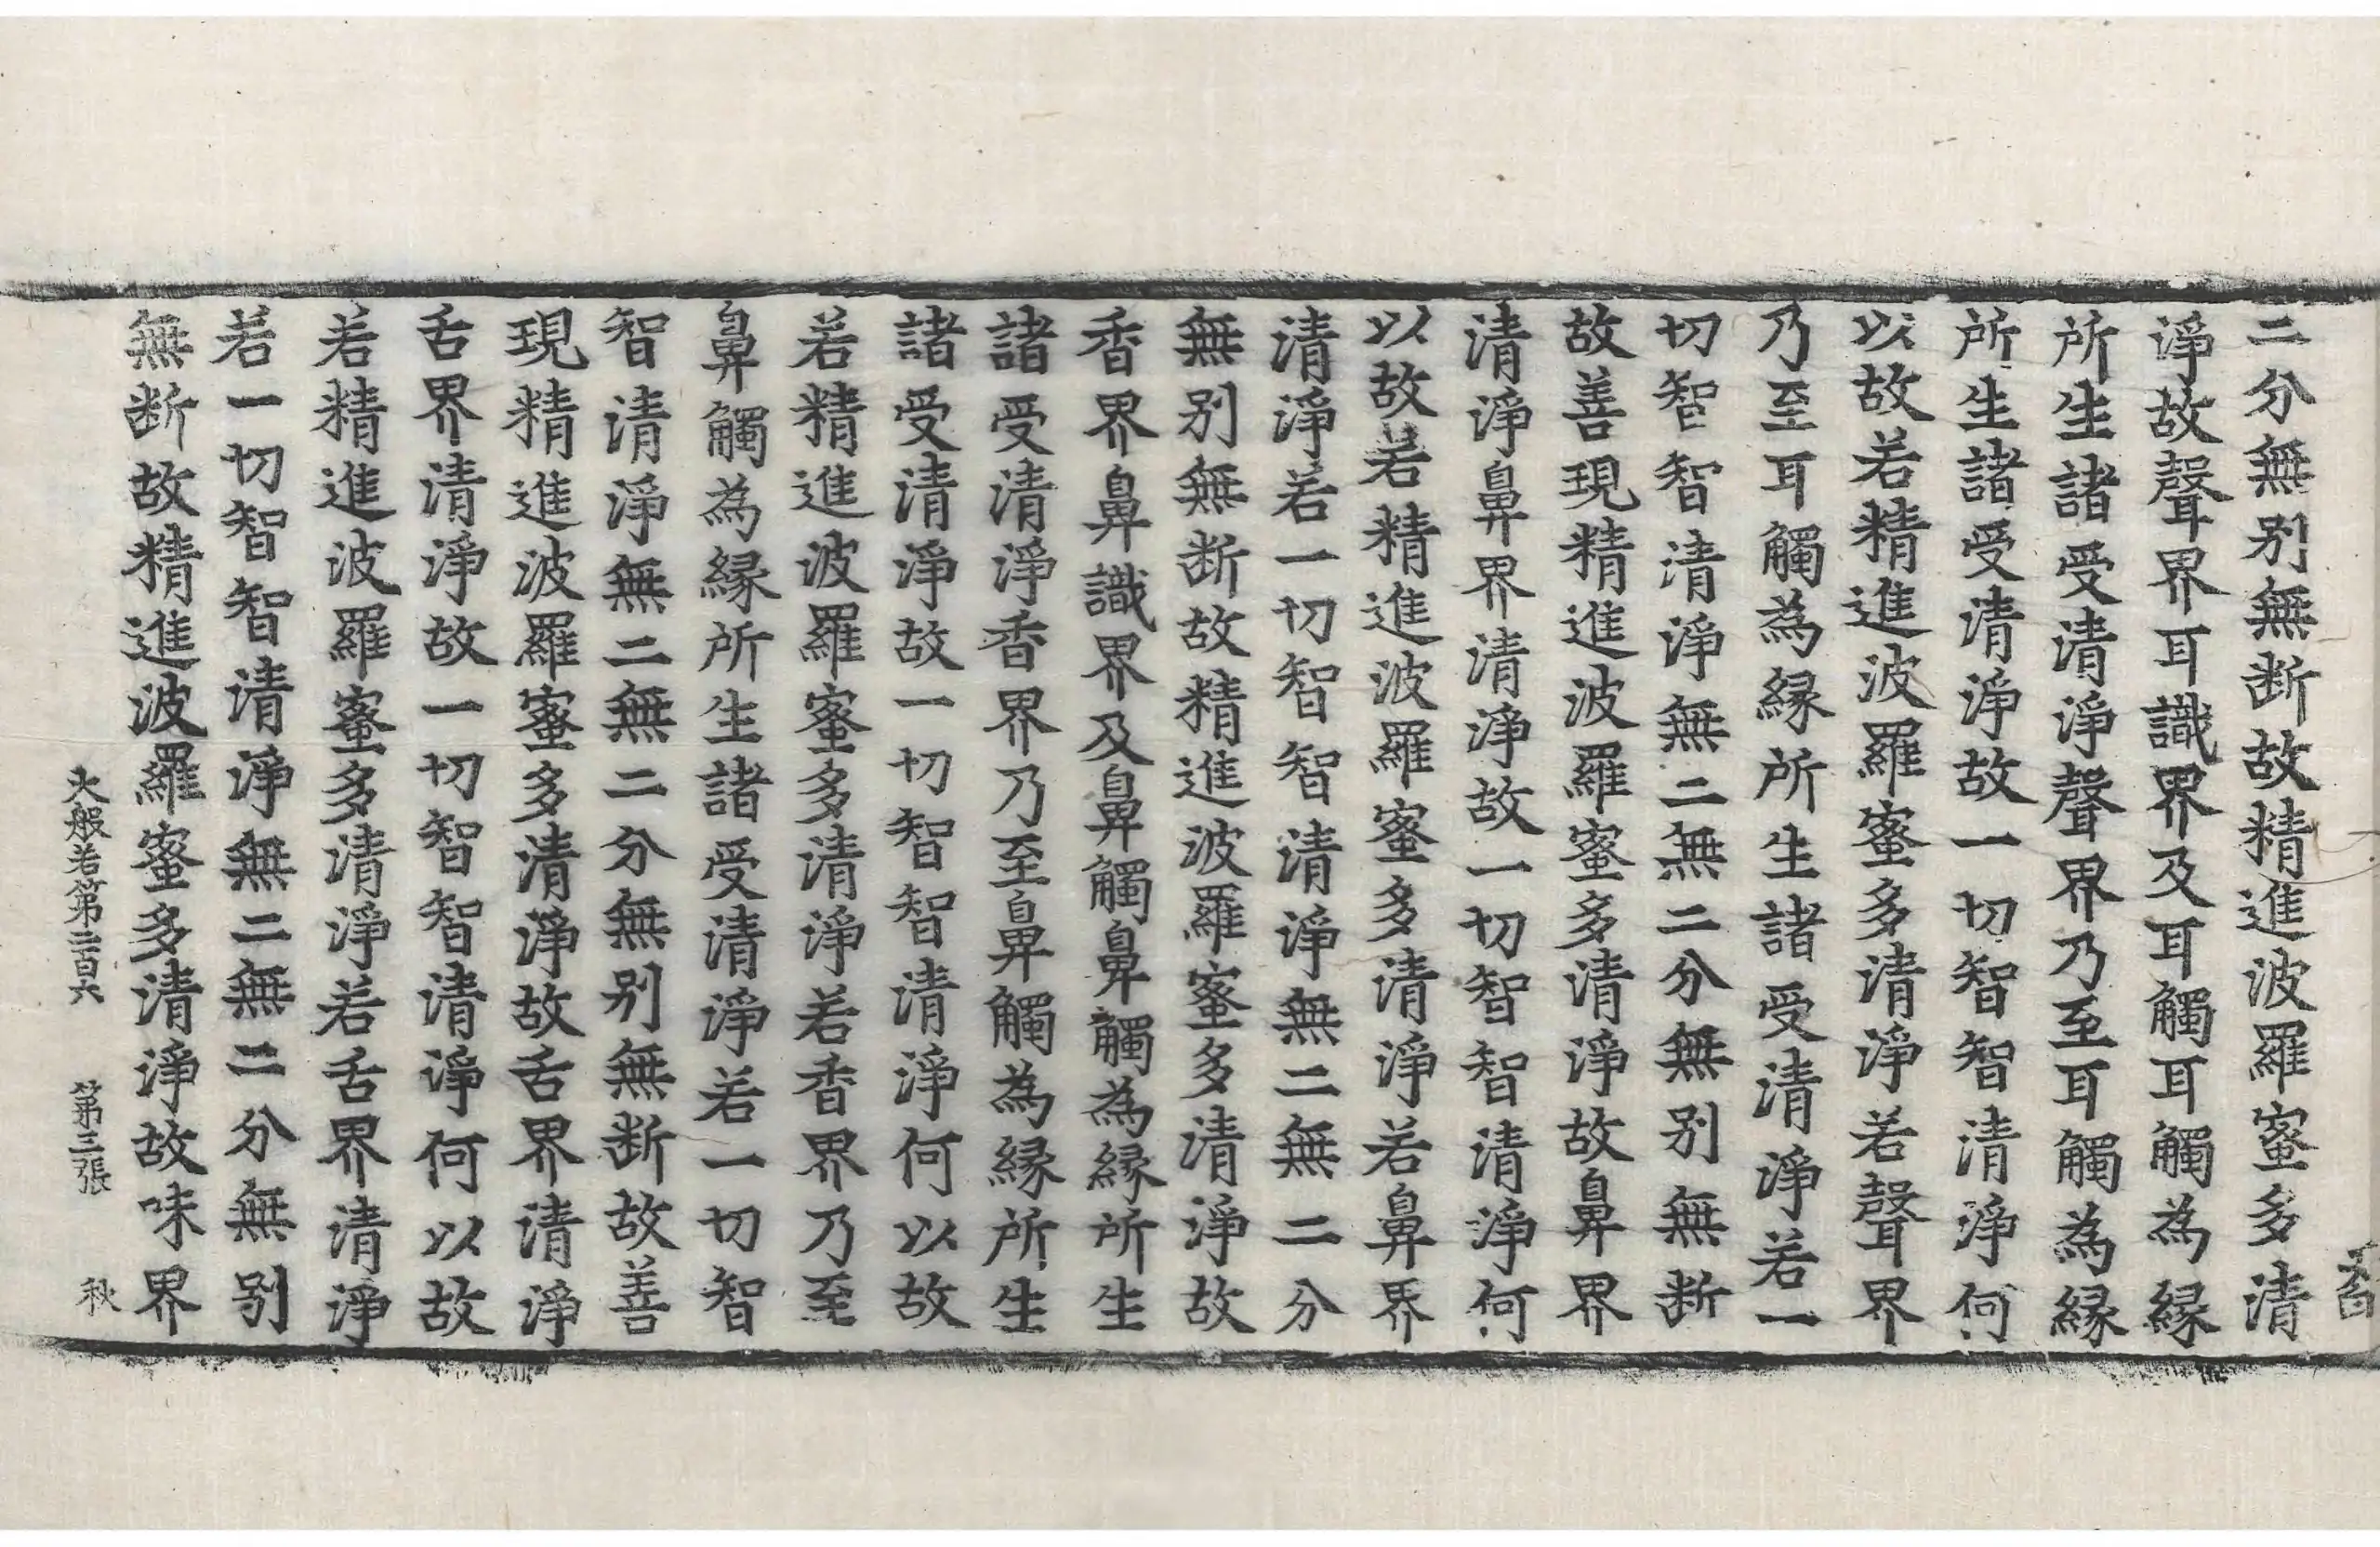 二分無别無断故精進波羅蜜多清
淨故聲界耳識界及耳觸耳觸為緣
所生諸受清淨聲界乃至耳觸為緣
所生諸受清淨故一切智智清淨何
以故若精進波羅蜜多清淨若聲界
乃至耳觸為緣所生諸受清淨若一
切智智清淨無二無二分無别無断
故善現精進波羅蜜多清淨故鼻界
清淨鼻界清淨故一切智智清淨何
以故若精進波羅蜜多清淨若鼻界
清淨若一切智智清淨無二無二分
無别無断故精進波羅蜜多清淨故
香界鼻識界及鼻觸鼻觸為緣所生
諸受清淨香界乃至鼻觸為緣所生
諸受清淨故一切智智清淨何以故
若精進波羅蜜多清淨若香界乃至
鼻觸為緣所生諸受清淨若一切智
智清淨無二無二分無别無断故善
現精進波羅蜜多清淨故舌界清淨
舌界清淨故一切智智清淨何以故
若精進波羅蜜多清淨若舌界清淨
若一切智智清淨無二無二分無别
無断故精進波羅蜜多清淨故味界
大般若第二百六 第三張 秋